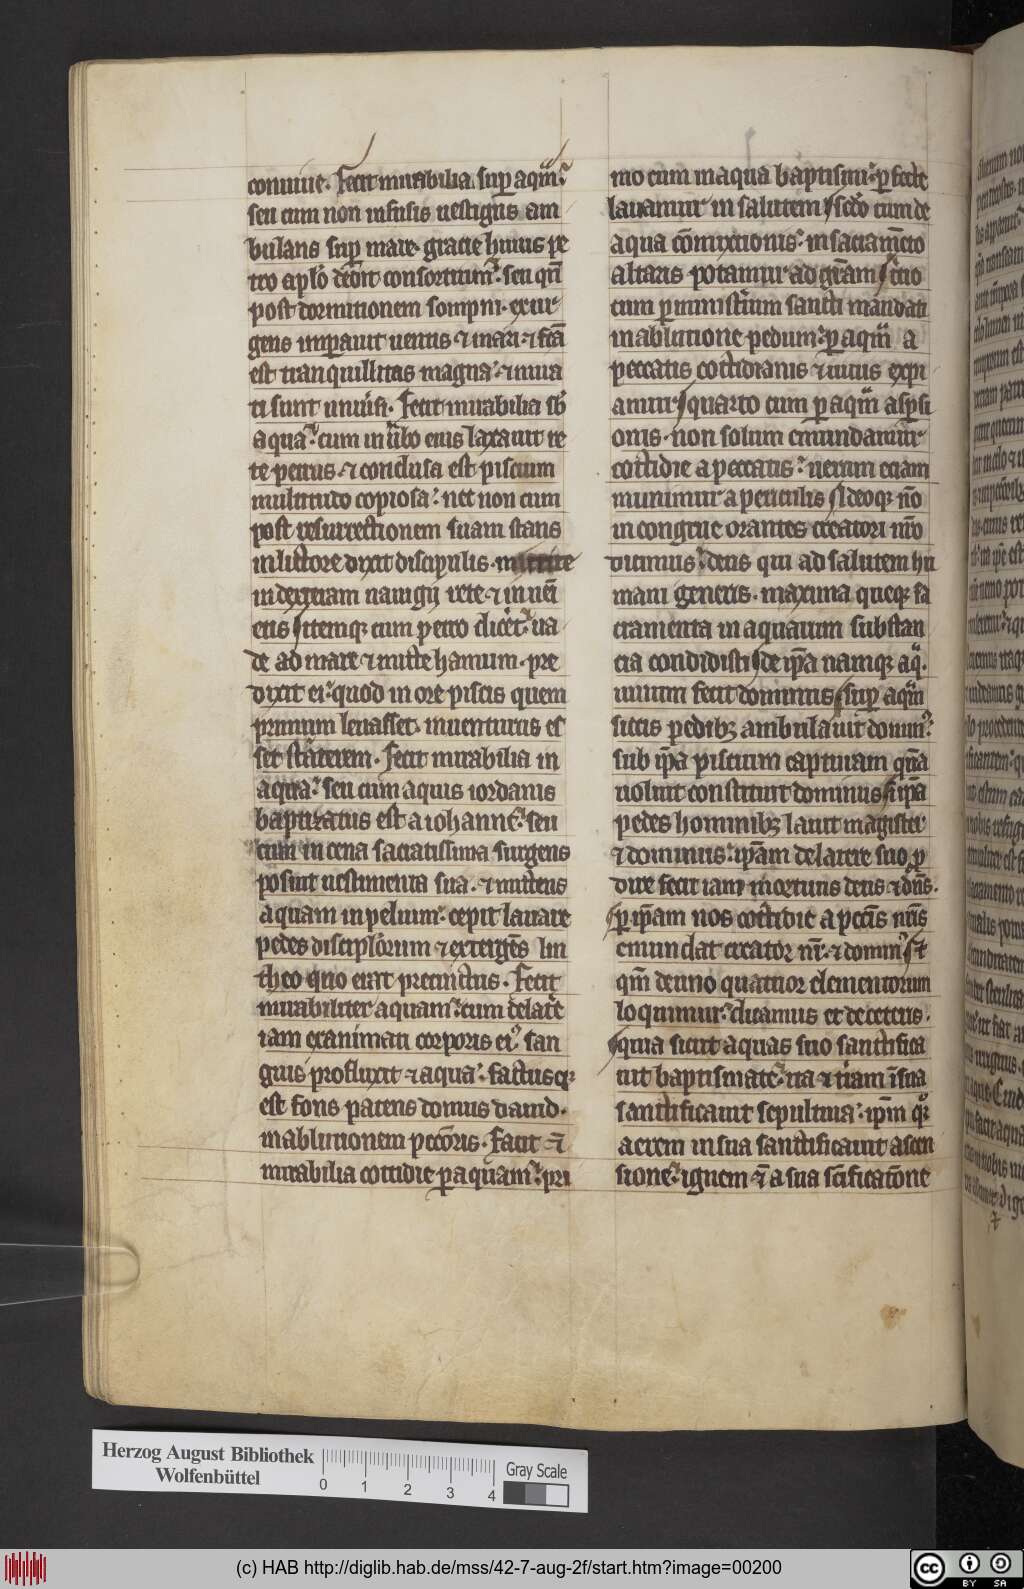 conuiue. Fecit mirabilia sup aquā.
seu cum non infusis uestigiis am
bulans sup mare. gracie huius pe
tro aplo dedit consortium. seu qn̄
post dormitionem sompni. exur
gens imperauit uentis ⁊ mari. ⁊ fcā
est tranquillitas magna. ⁊ mira
ti sunt uniuersi. Fecit mirabilia sb
aqua. cum in uerbo eius laxauit re
te petrus. ⁊ conclusa est piscium
multitudo copiosa. nec non cum
post resurrectionem suam stans
in littore dixit discipulis. mittite
in dexteram nauigij rete ⁊ inueni
etis itemqꝫ cum petro diceret. ua
de ad mare ⁊ mitte hamum. pre
dixit ei. quod in ore piscis quem
primum leuasset. inuenturus es
set staterem. Fecit mirabilia in
aqua. seu cum aquis iordanis
baptizatus est a iohanne. seu
cum in cena sacratissima surgens
posuit uestimenta sua. ⁊ mittens
aquam in peluim. cepit lauare
pedes discipulorum ⁊ extergens lin
theo quo erat precinctus. Fecit
mirabiliter aquam. cum de latere
iam exanimati corporis ei. san
guis profluxit ⁊ aqua. factusqꝫ
est fons patens domus dauid.
in ablutionem peccoris. Facit ⁊
mirabilia cottidie ꝑ aquam. pri
mo cum in aqua baptismi. ꝑ fidē
lauamur in salutem scdo cum de
aqua cōmixtionis. in sacramēto
altaris potamur ad grām tcio
cum ꝑ ministerium sancti mandati
in ablutione pedum. ꝑ aquā a
peccatis cottidianis ⁊ uiciis expi
amur quarto cum ꝑ aquā aspsi
onis. non solum emundamur
cottidie a peccatis. uerum eciam
munimur a periculis Ideoqꝫ nō
incongrue orantes creatori nrō
dicimus. deus qui ad salutem hu
mani generis. maxima queqꝫ sa
cramenta in aquarum substan
cia condidisti de ipa namqꝫ aq̄.
uinum fecit dominus sup aquā
siccis pedibꝫ ambulauit domin.
sub ipa piscium capturam quā
uoluit constituit dominus ipa
pedes hominibꝫ lauit magister
⁊ dominus. ipam de latere suo ꝓ
dire fecit iam mortuus deus ⁊ dn̄s.
ꝑ ipam nos cottidie a pccis nr̄is
emundat creator nr̄. ⁊ domin
qm̄ de uno quatuor elementorum
loquimur. dicamus et de ceteris.
quia sicut aquas suo sanctifica
uit baptismate. ita ⁊ terram in sua
sanctificauit sepultura. ipm qꝫ
aerem in sua sanctificauit ascen
sione. ignem ⁊ a sua scificatōne
Herzog August Bibliothek
Wolfenbüttel
0 1 2 3 4
Gray Scale
(c) HAB http://diglib.hab.de/mss/42-7-aug-2f/start.htm?image=00200
cc BY SA